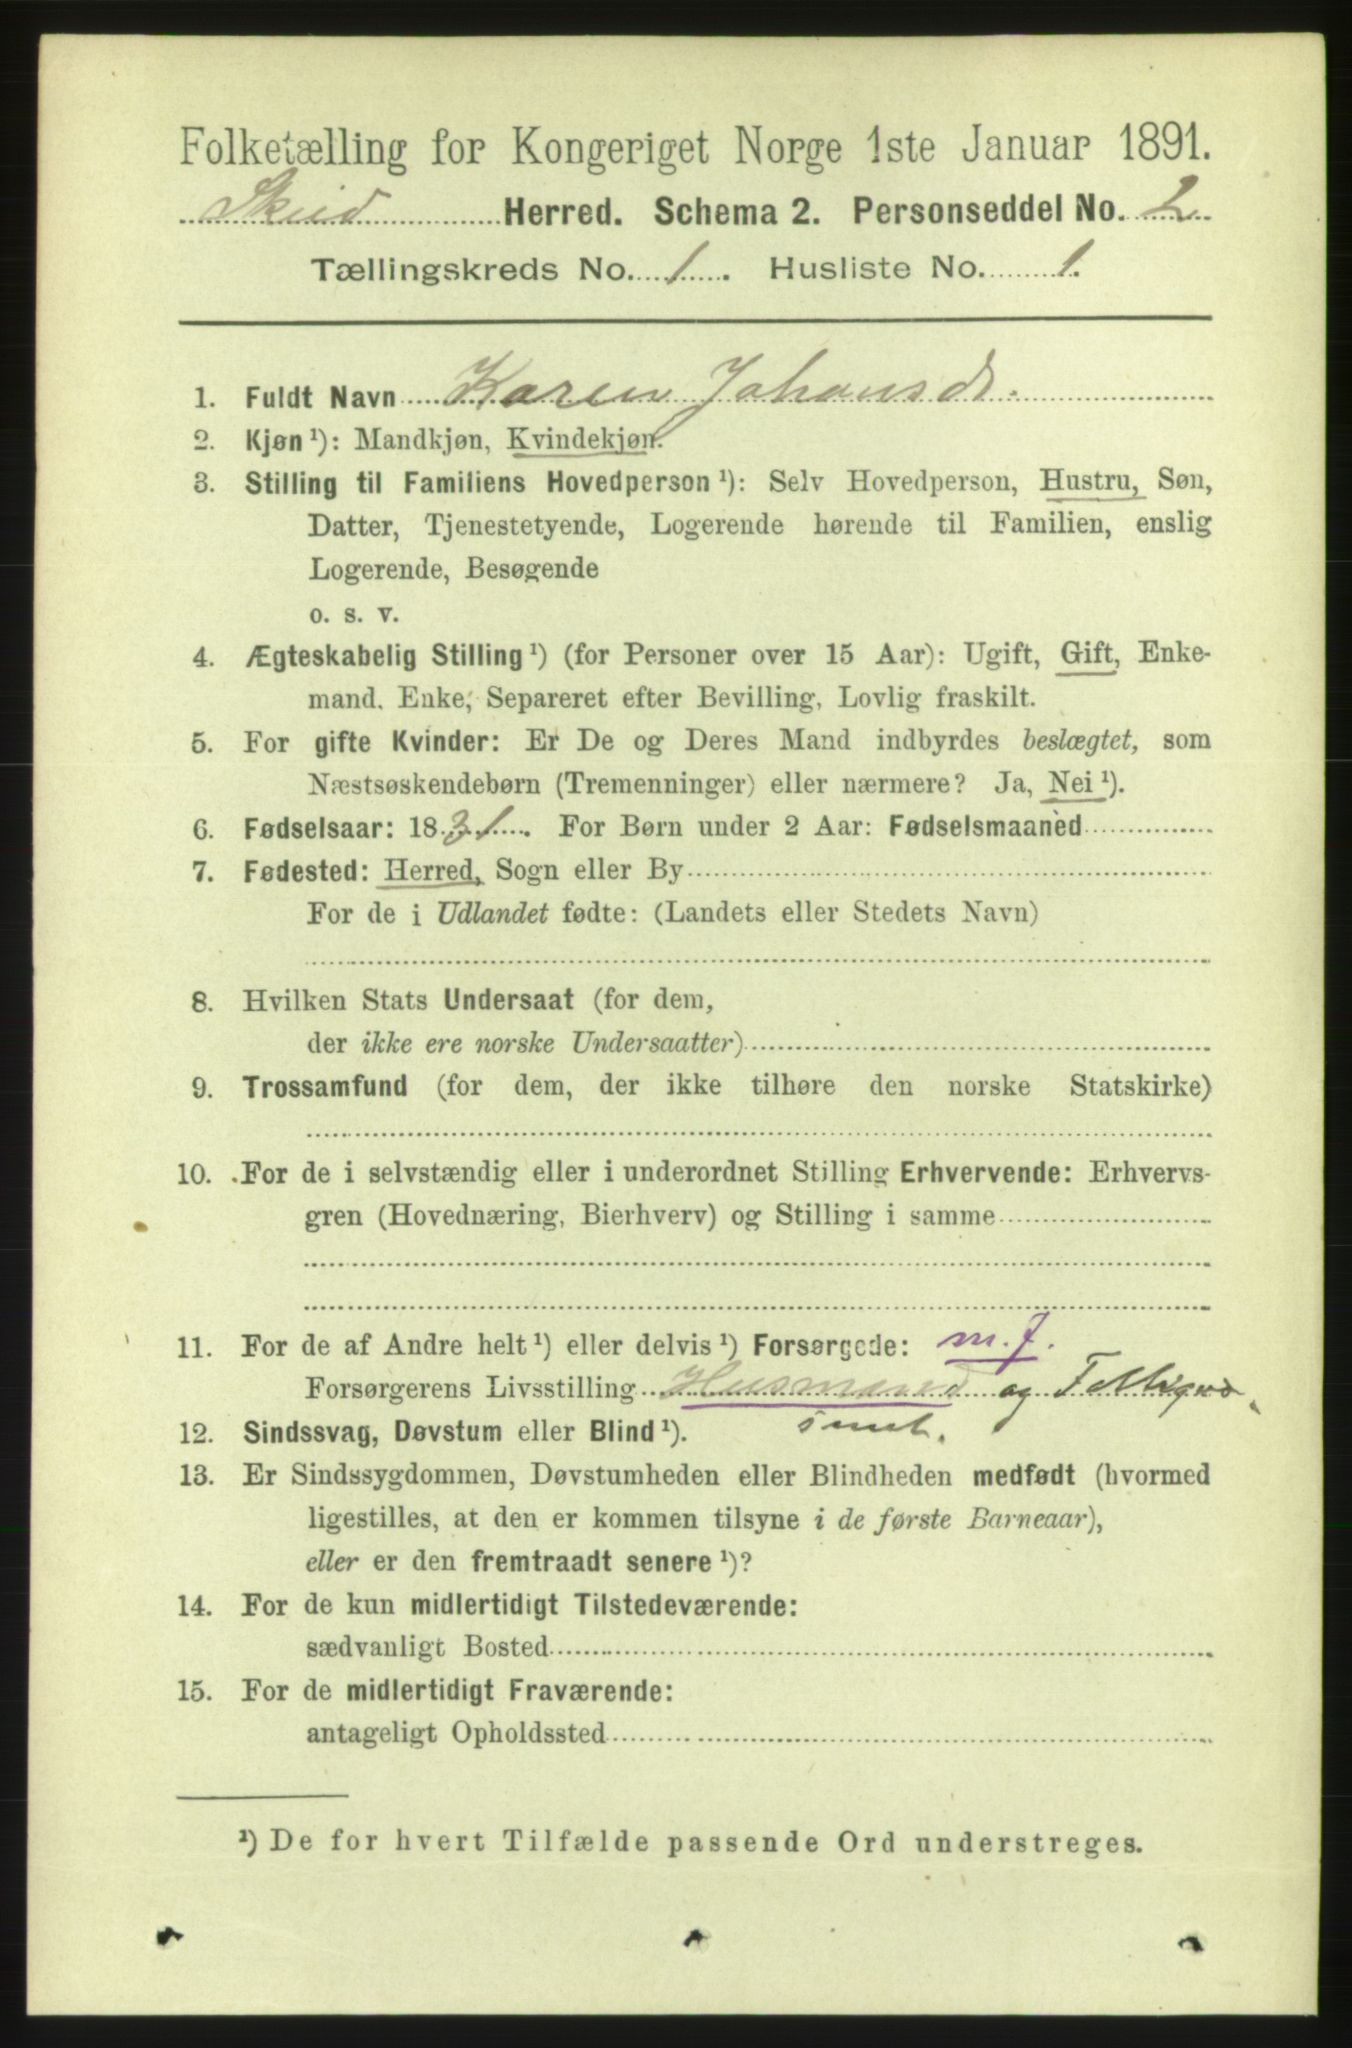 Folketælling for Kongeriget Norge 1ste Januar 1891.
Skeid Herred. Schema 2. Personseddel No. 2
Tællingskreds No. 1. Husliste No. 1.
1. Fuldt Navn Karen Johansdr.
2. Kjøn ¹): Mandkjøn, Kvindekjøn.
3. Stilling til Familiens Hovedperson ¹): Selv Hovedperson, Hustru, Søn,
Datter, Tjenestetyende, Logerende hørende til Familien, enslig
Logerende, Besøgende
o. s. v.
4. Ægteskabelig Stilling ¹) (for Personer over 15 Aar): Ugift, Gift, Enke-
mand. Enke, Separeret efter Bevilling, Lovlig fraskilt.
5. For gifte Kvinder: Er De og Deres Mand indbyrdes beslægtet, som
Næstsøskendebørn (Tremenninger) eller nærmere? Ja, Nei ¹).
6. Fødselsaar: 1831. For Børn under 2 Aar: Fødselsmaaned
7. Fødested: Herred, Sogn eller By
For de i Udlandet fødte: (Landets eller Stedets Navn)
8. Hvilken Stats Undersaat (for dem,
der ikke ere norske Undersaatter)
9. Trossamfund (for dem, der ikke tilhøre den norske Statskirke)
10. For de i selvstændig eller i underordnet Stilling Erhvervende: Erhvervs-
gren (Hovednæring, Bierhverv) og Stilling i samme
11. For de af Andre helt ¹) eller delvis ¹) Forsørgede: m. f.
Forsørgerens Livsstilling Husmand og
12. Sindssvag, Døvstum eller Blind ¹).
13. Er Sindssygdommen, Døvstumheden eller Blindheden medfødt (hvormed
ligestilles, at den er kommen tilsyne i de første Barneaar),
eller er den fremtraadt senere ¹)?
14. For de kun midlertidigt Tilstedeværende:
sædvanligt Bosted
15. For de midlertidigt Fraværende:
antageligt Opholdssted
¹) De for hvert Tilfælde passende Ord understreges.